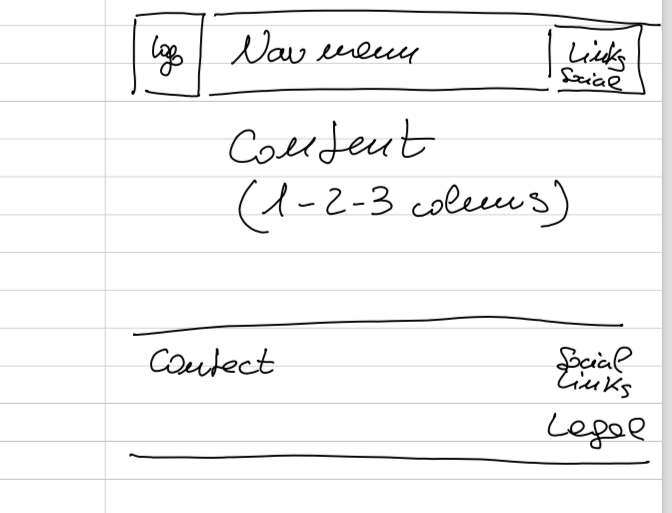 Logo Nav menu Links
Social
Content
(1-2-3 colums)
Contact Social
Links
Legal